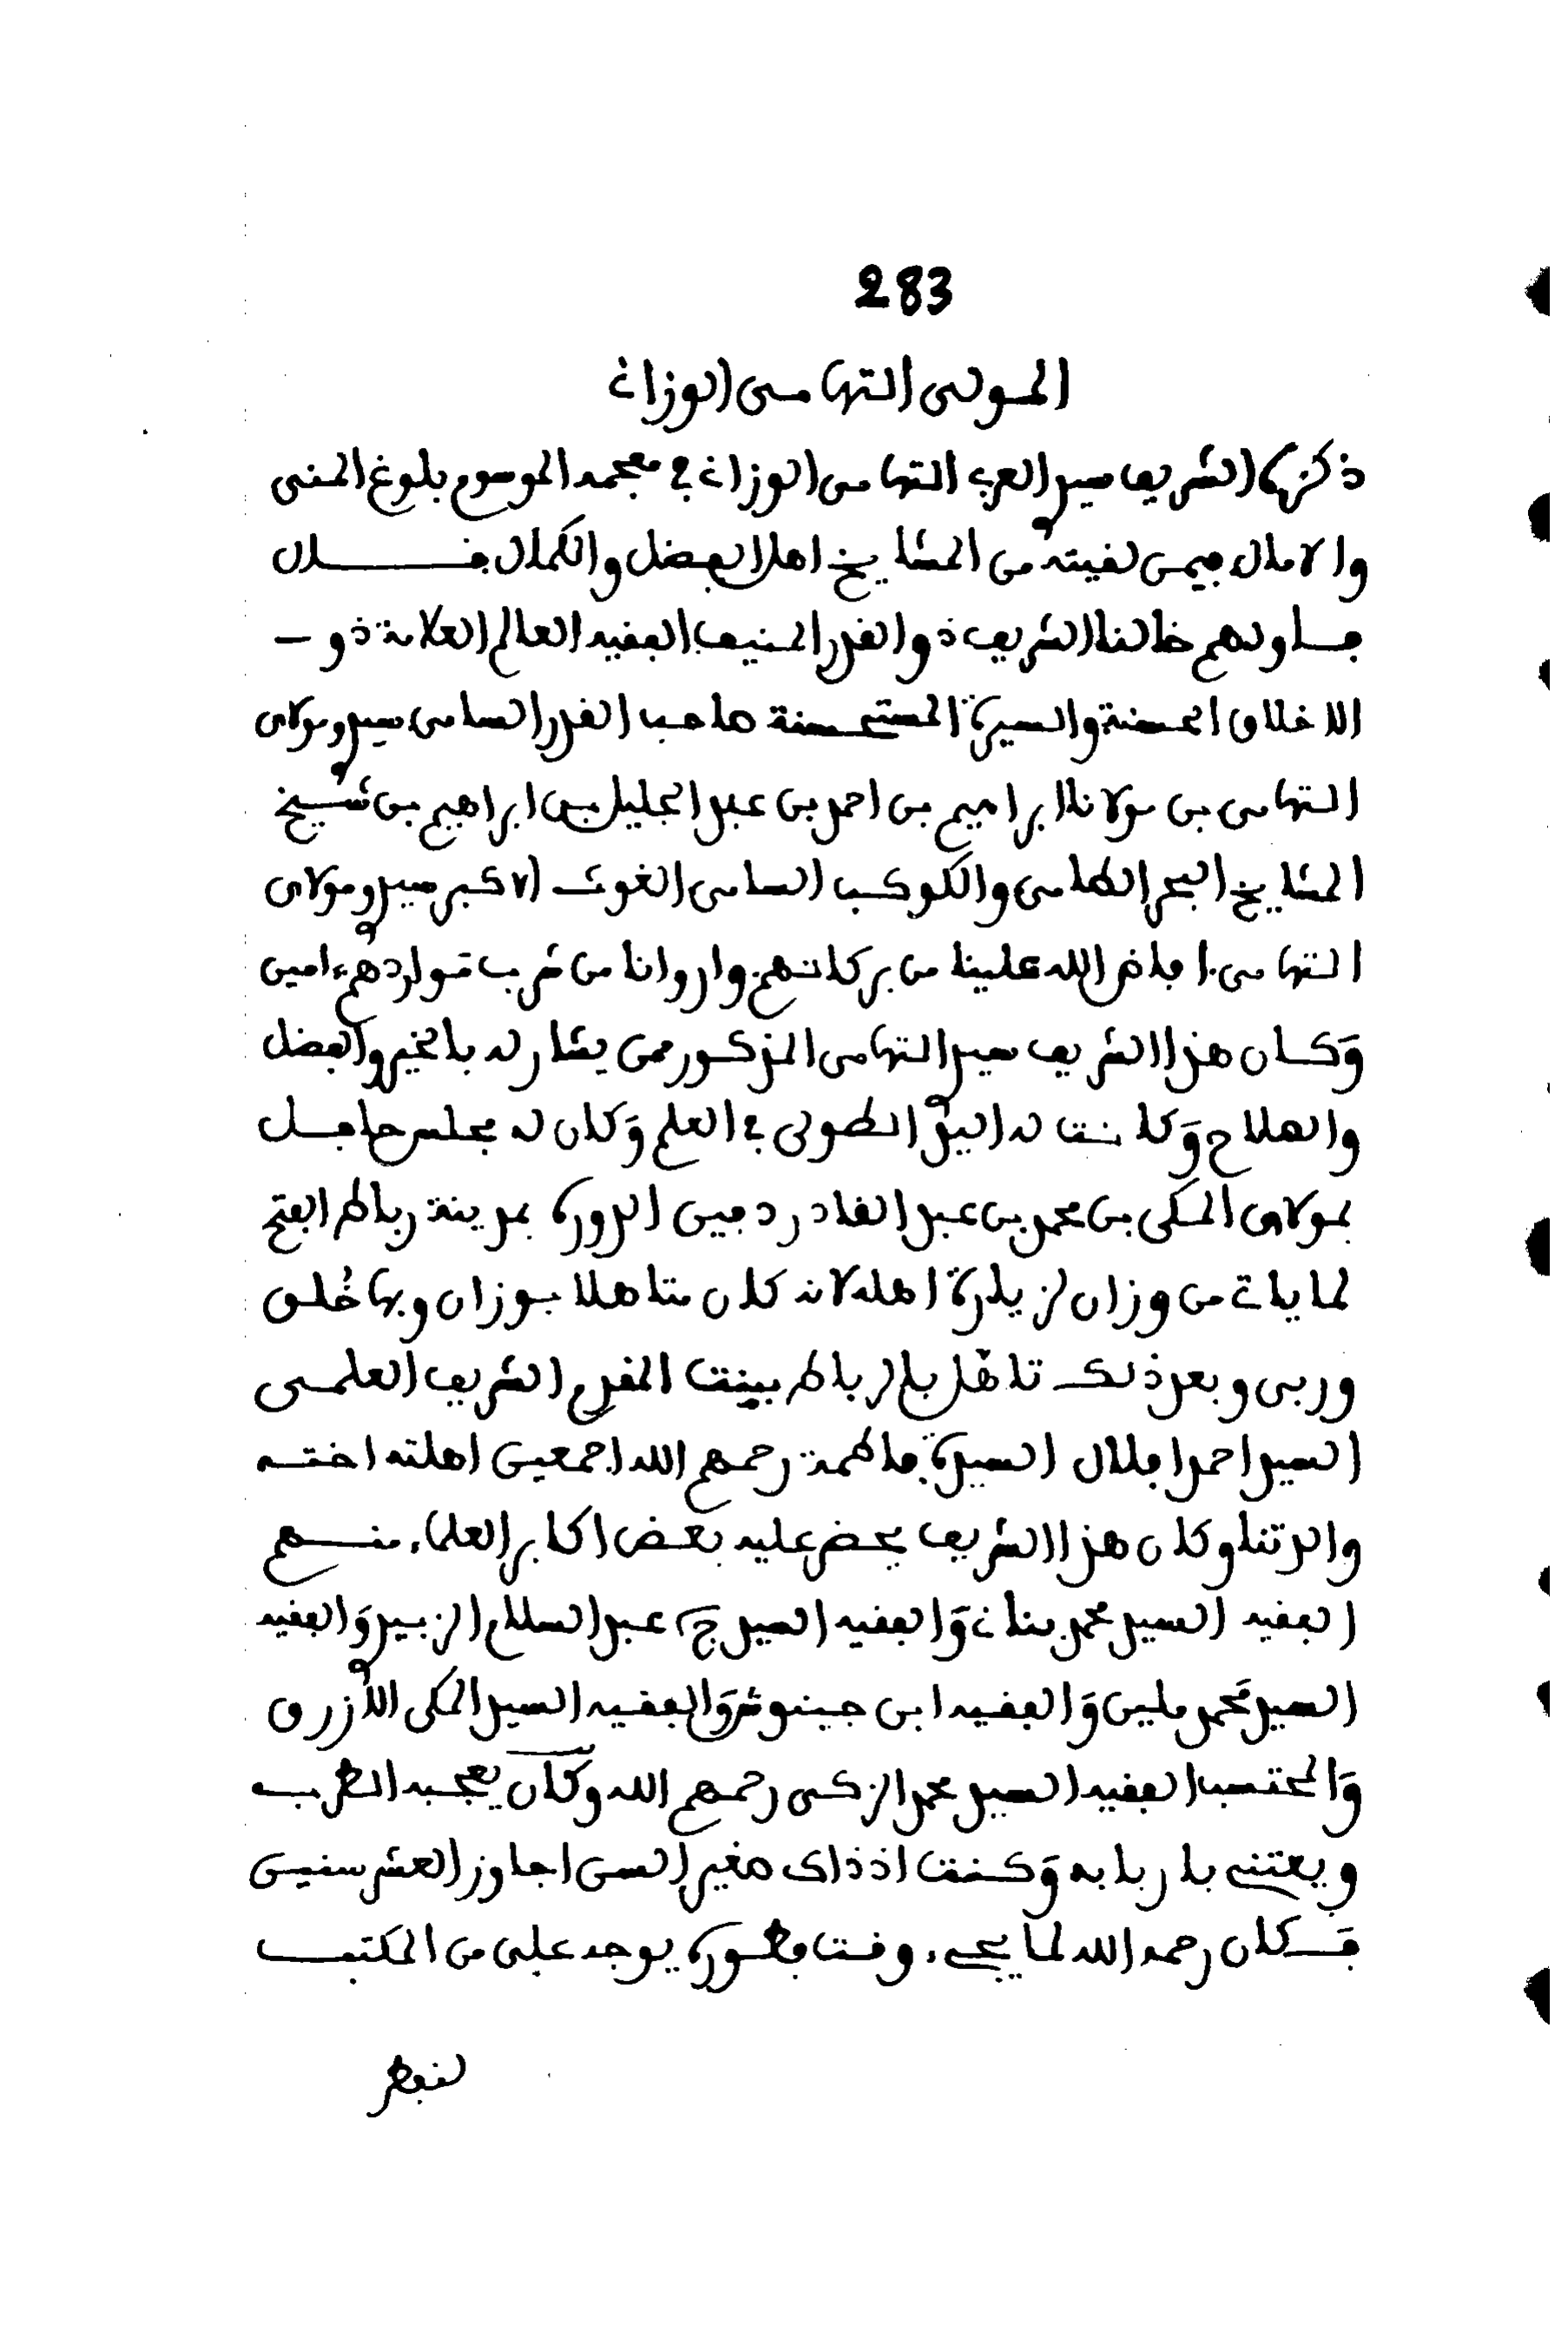 283
المولى التهامى الوزانى
ذكره الشريف سيدى العربى التهامى الوزانى فى معجمه الموسوم ببلوغ المنى
والامال فيمن لقيته من المشايخ اهل الفضل والكمال فقال
فاولهم خالنا الشريف ذو القدر المنيف الفقيه العالم العلامة ذو
الاخلاق الحسنة والسيرة المستحسنة صاحب القدر السامى سيدى ومولاى
التهامى بن مولانا ابراهيم بن احمد بن عبد الجليل بن ابراهيم بن شيخ
المشايخ البحر الطامى والكوكب السامى الغوث الاكبر سيدى ومولاى
التهامى افاض الله علينا من بركاتهم واروانا من شرب مواردهم ءامين
وَكان هذا الشريف سيدى التهامى المذكور ممن يشار له بالخير والفضل
والصلاح وَكانت له اليد الطولى فى العلم وَكان له مجلس حافل
بمولاى المكى بن محمد بن عبد القادر دفين الزورة بمدينة رباط الفتح
لما ياتى من وزان لزيارة اهله لانه كان متاهلا بوزان وبها خُلق
وربى وبعد ذلك تاهّل بالرباط ببنت المقدم الشريف العلمى
السيد احمد افلال السيدة فاطمة رحمهم الله اجمعين اهلته اخته
والدتنا وكان هذا الشريف يحضر عليه بعض اكابر العلماء منهم
الفقيه السيد محمد بنانى وَالفقيه السيد ج عبد السلام الزبيدى وَالفقيه
السيد مَحمد ملين وَالفقيه ابن جينوش وَالفقيه السيد المكى الأزرق
وَالمحتسب الفقيه السيد محمد الزكى رحمهم الله وكان يعجبه الطرب
ويعتنى باربابه وَكنت اذذاك صغير السن اجاوز العشر سنين
فَكان رحمه الله لما يجىء وقت فطوره يوجه على من المكتب
لنفطر